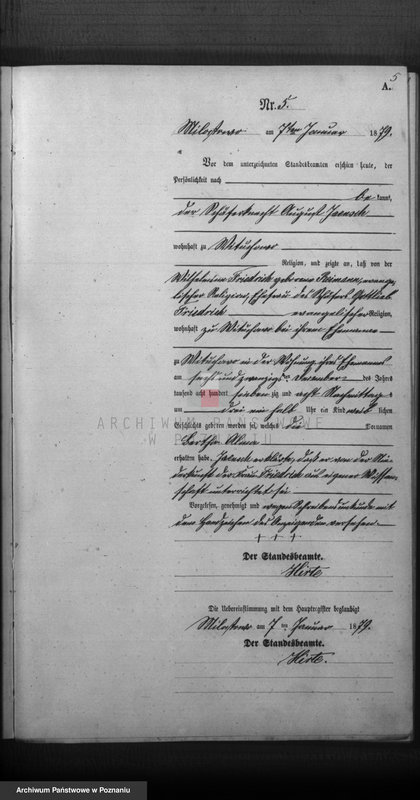 5
A.
Nr. 5.
Milostowo am 7ten Januar 1879.
Vor dem unterzeichneten Standesbeamten erschien heute, der
Persönlichkeit nach
be kannt,
der Schäferknecht August Jaensch
wohnhaft zu Mituchowo
Religion, und zeigte an, daß von der
Wilhelmine Friedrich geborene Reimann, evange-
lischer Religion, Ehefrau des Schäfers Gottlieb
Friedrich evangelischer Religion,
wohnhaft zu Mituchowo bei ihrem Ehemanne
zu Mituchowo in der Wohnung ihres Ehemannes
am sechs und zwanzigsten Dezember des Jahres
tausend acht hundert sieben zig und acht Nachmittags
um drei ein halb Uhr ein Kind weib lichen
Geschlechts geboren worden sei, welches die Vornamen
Bertha Alma
erhalten habe. Jaensch erklärte, daß er von der Nie-
derkunft der Frau Friedrich aus eigener Wissen-
schaft unterrichtet sei
Vorgelesen, genehmigt und wegen Schreibensunkunde mit
dem Handzeichen des Anzeigenden versehen
+ + +
Der Standesbeamte.
Hirte
Die Uebereinstimmung mit dem Hauptregister beglaubigt
Milostowo am 7ten Januar 1879.
Der Standesbeamte.
Hirte.
ARCHIWUM PAŃSTWOWE
W POZNANIU
Archiwum Państwowe w Poznaniu